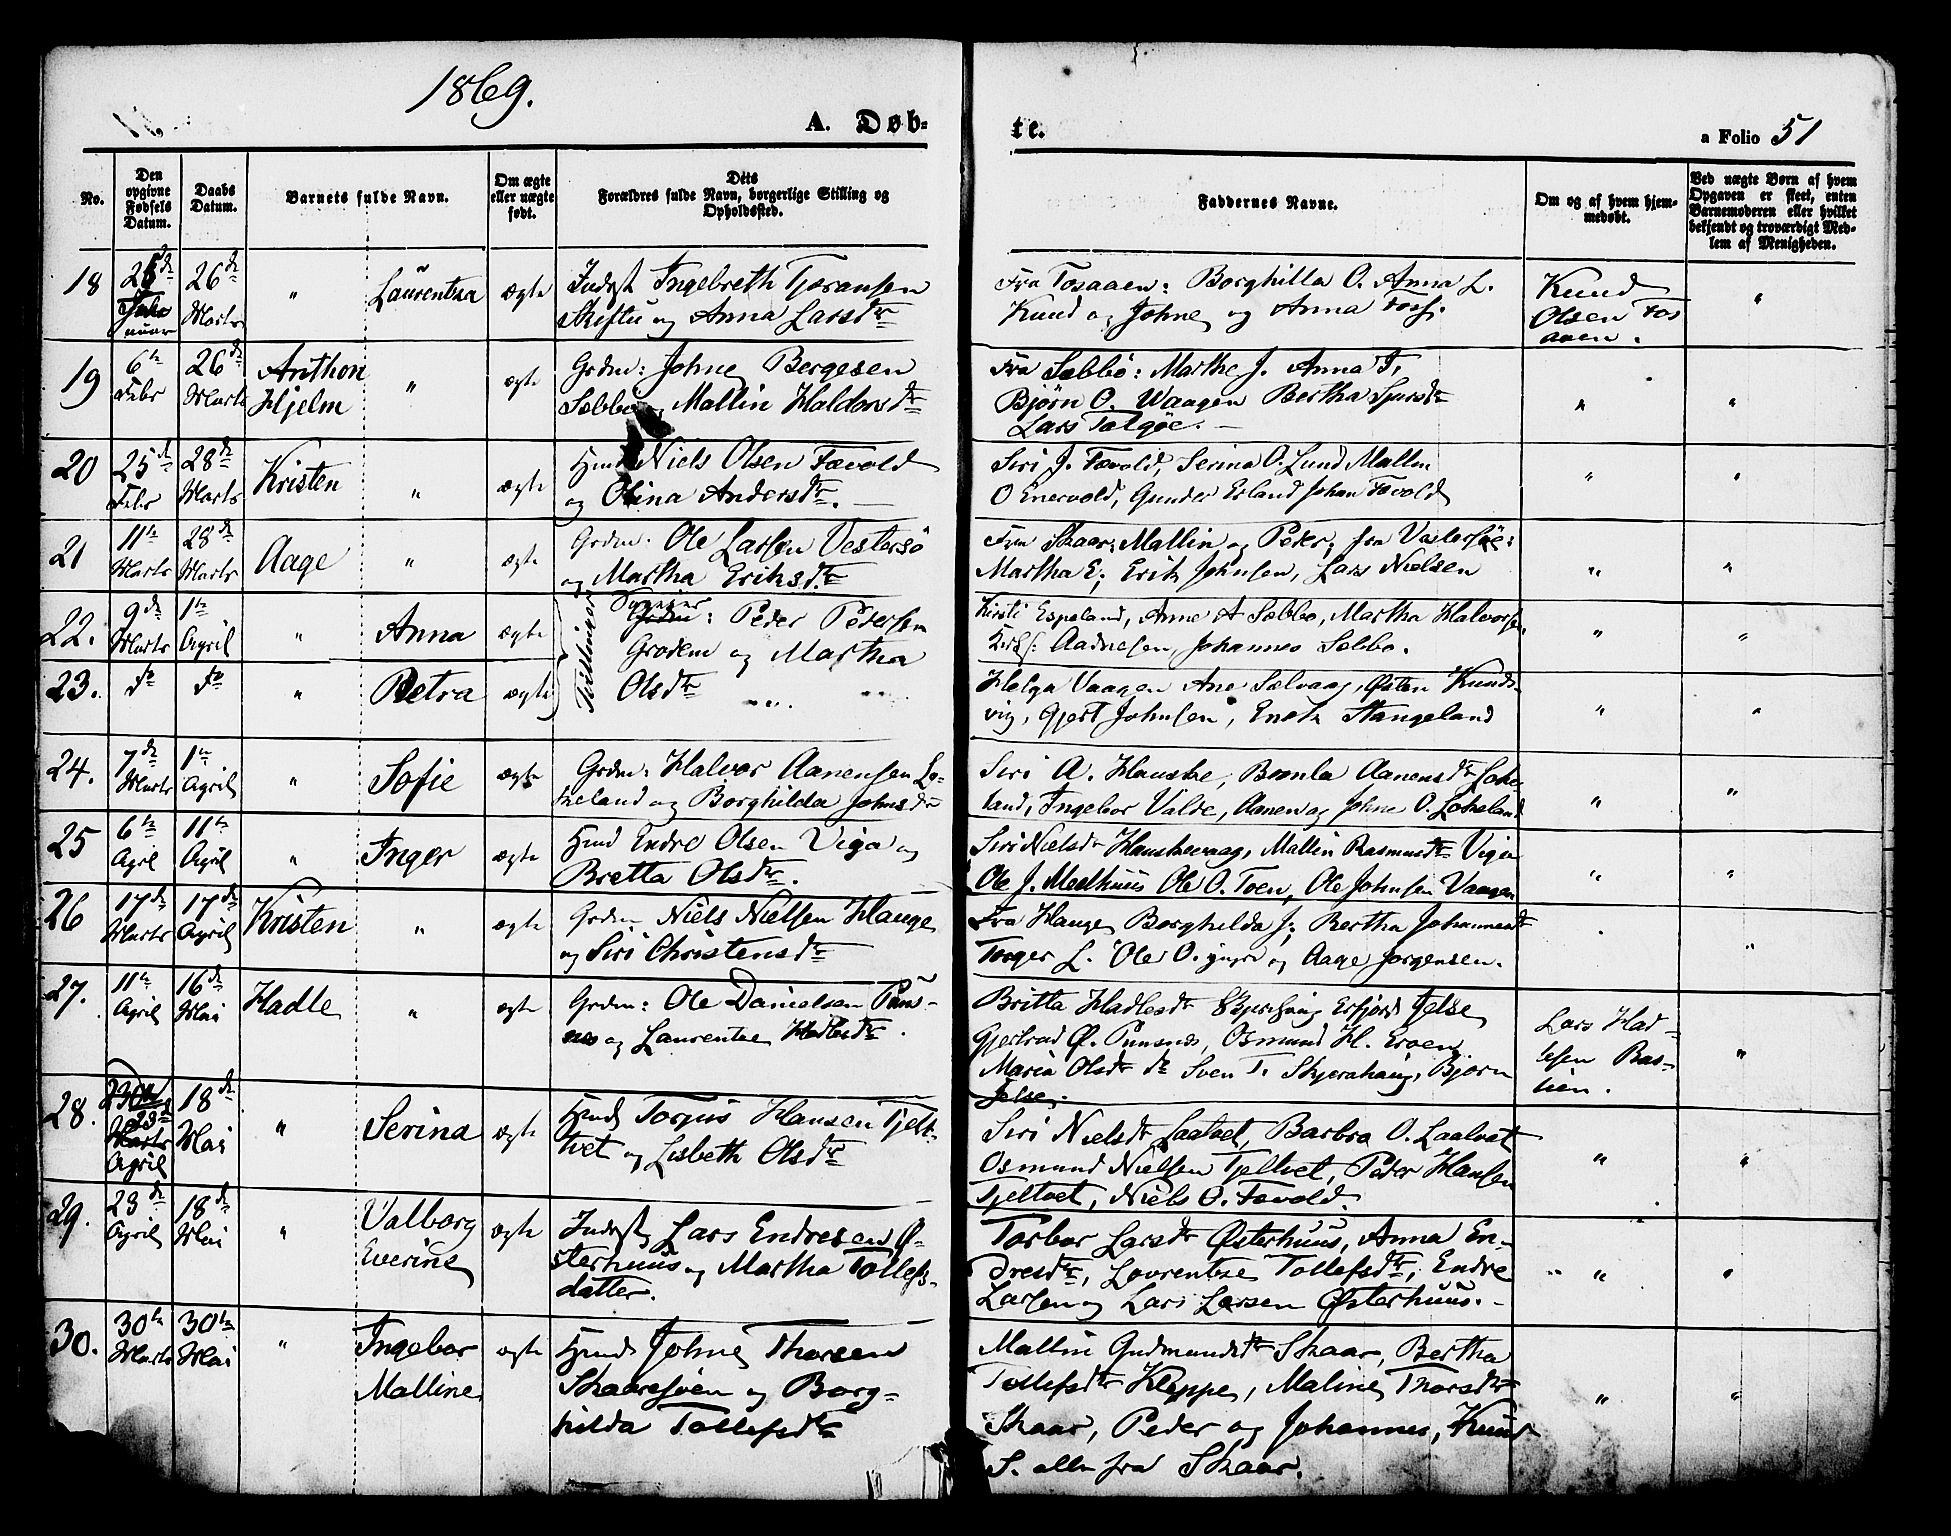 1869.
A. Døb-
te.
a Folio 51
No.
Den opgivne Fødsels Datum.
Daabs Datum.
Barnets fulde Navn.
Om ægte eller uægte født.
Dets Forældres fulde Navn, borgerlige Stilling og Opholdssted.
Faddernes Navne.
Om og af hvem hjemmedøbt.
Ved uægte Børn af hvem Opgaven er skeet, enten Barnemoderen eller hvilket bekjendt og troværdigt Medlem af Menigheden.
18 26de Januar 26de Marts " Laurentza ægte
Inderst Ingebreth Tjøransen
og Anna Larsdtr
Fra Fosaaen: Borghilla O. Anna L.
Knud og Johne og Anna
Knud
Olsen Fos
aaen.
"
19 6te Febr 26de Marts Anthon Hjelm " ægte
Grdm: Johne Bergesen
Sæbbø og Mallin Haldorsdtr
Fra Sæbbø: Marthe J. Anna T.
Bjørn O. Waagen Bertha Sjursdtr
Lars Talgøe.
" "
20 25de Febr 28de Marts Kristen " ægte
Hmd Niels Olsen Fævold
og Olina Andersdtr.
Siri J. Fævold, Serina O. Lund Mallin
O Enervold, Gunder Erland Johan Fævold
" "
21 11te Marts 28de Marts Aage " ægte
Grdm: Ole Larsen Vestersø
og Martha Eriksdtr
Fra Skaar: Mallin og Peder; fra Vestersøe:
Martha E; Erik Johnsen, Lars Nielsen
" "
22. 9de Marts 1te April " Anna ægte
Tvillinger
Grdm: Peder Pedersen
Grodem og Martha
Kirsti Espeland, Anne A Sæbbø, Martha Halvorsen
Aadnesen, Johannes Sæbbø.
" "
23. do do " Petra ægte
Olsdtr
Helga Vaagen Ane Sælvaag, Østen Knuds-
vig, Gjert Johnsen, Enok Stangeland
" "
24. 7de Marts 1te April " Sofie ægte
Grdm: Halvor Aanensen Lo-
keland og Borghilda Johnsdtr
Siri A. Hauske, Bronla Aanensdtr Loke-
land, Ingebor Valde, Aanen og Johne O. Lokeland
" "
25 6te April 11te April " Inger ægte
Hmd Endre Olsen Viga og
Bretta Olsdtr.
Siri Nielsdtr Hauskevaag, Mallin Rasmusdtr Viga
Ole J. Meelhuus Ole O. Toen, Ole Johnsen Vaagen
" "
26 17de Marts 17de April Kristen " ægte
Grdm Niels Nielsen Hauge
og Siri Christensdtr
Fra Hauge Borghilda J; Bertha Johannesdtr
Torger L. Ole O. yngre og Aage Jørgensen.
"
27. 11te April 16de Mai Hadle " ægte
Grdm: Ole Danielsen Puns-
nes og Laurentze Hadlesdtr.
Britta Hadlesdtr Erfjord Jelse
Gjertrud Ø. Punsnes, Osmund H. Eroen
Maria Olsdtr do Sven T. Skjerahaug, Bjørn
Jelse.
Lars Had-
lesen Bas-
tien.
"
28. 23de April 18de Mai " Serina ægte
Hmd Torgius Hansen Tjelt-
vet og Lisbeth Olsdtr
Siri Nielsdtr Laalvet, Barbra O. Laalvet
Osmund Nielsen Tjeltvet, Peder Hansen
Tjeltvet, Niels O. Fævold.
" "
29. 23de April 18de Mai " Valborg Everine ægte
Inderst Lars Endresen Ø-
sterhuus og Martha Tollefs-
datter.
Torbor Larsdtr Østerhuus, Anna En-
dresdtr, Lavrentze Tollefsdtr, Endre
Larsen og Lars Larsen Østerhuus.
" "
30. 30te Marts 30te Mai " Ingebor Malline ægte
Hmd Johne Thorsen
Skaaresøen og Borg-
hilda Tollefsdtr
Mallin Gudmundsdtr Skaar, Bertha
Tollefsdtr Kleppe, Maline Thorsdtr
Skaar, Peder og Johannes, Knud
S. alle fra Skaar.
" "